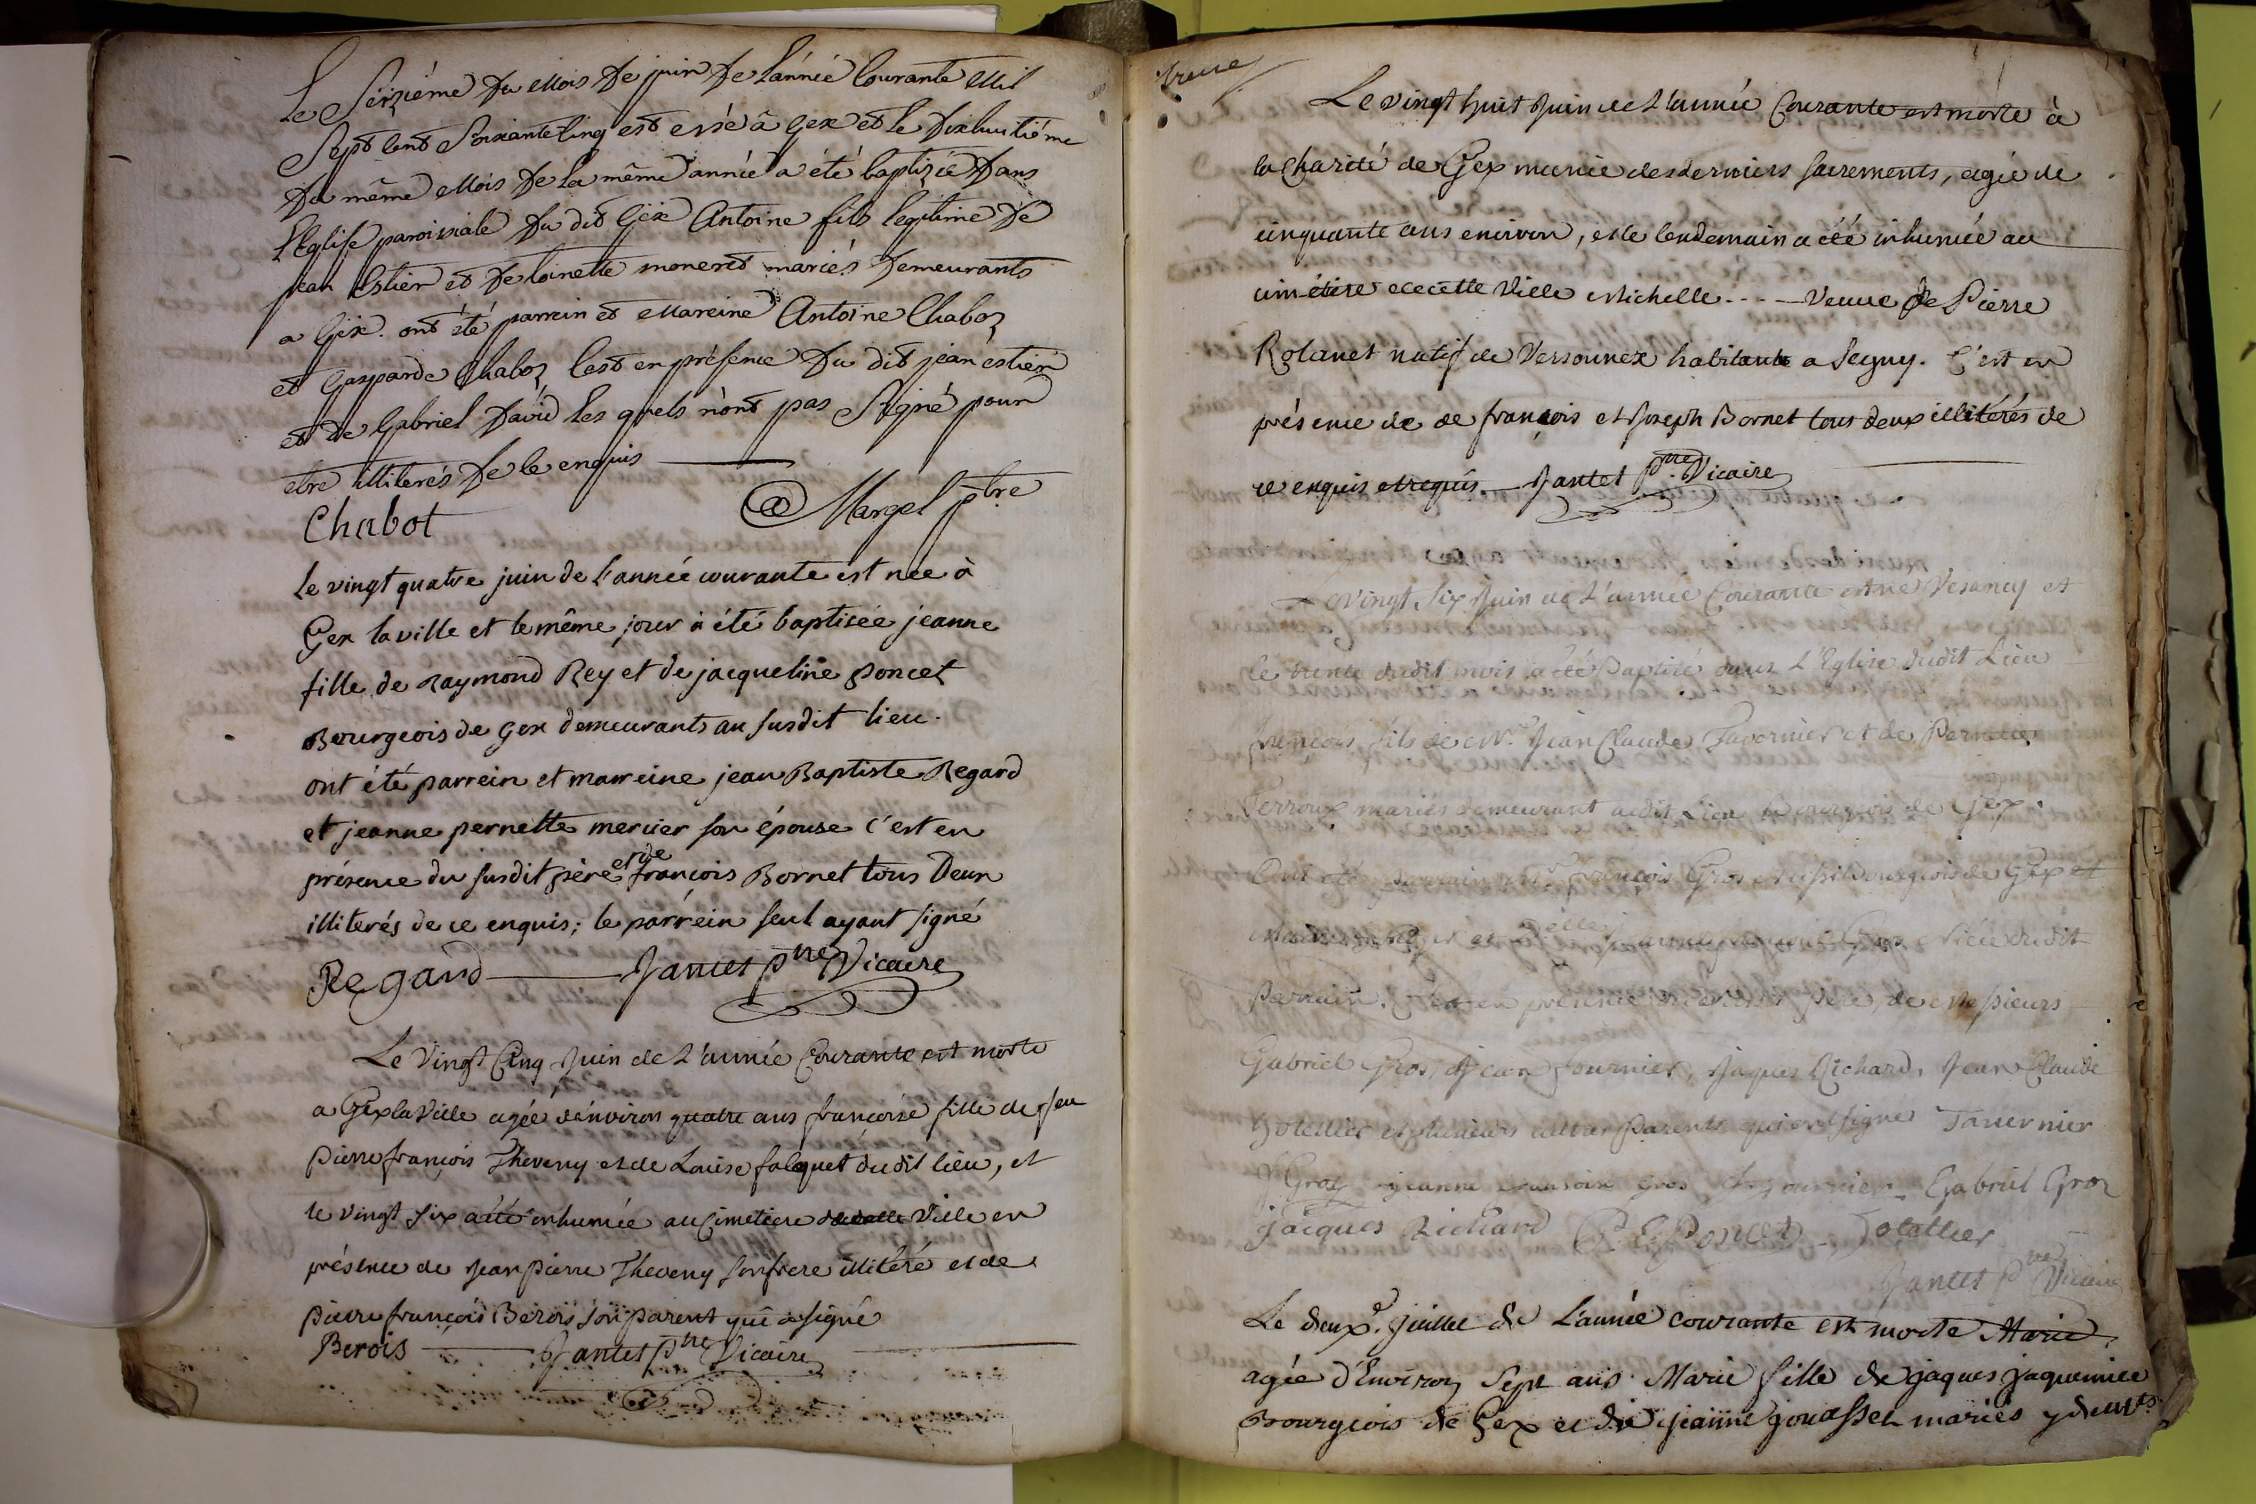 Le Seizieme Du Mois De juin De L'année Courante Mil
Sept Cent Soixante Cinq est è né â Gex et le Dixhuitiême
Du même Mois De la même année a été baptizée Dans
l'Eglise paroissiale Du dit Gex Antoine fils legitime De
jean Estier et De toinette moneret mariés Demeurants
a Gex. ont été parrein et Mareine Antoine Chaboz
et Gasparde Chaboz C'est en présence Du dit jean estier
et de Gabriel David les quels n'ont pas Signé pour
etre illiterés De le enquis
Chabot Margel pbre
le vingt quatre juin de l'année courante est née à
Gex la ville et le même jour à été baptisée jeanne
fille de Raymond Rey et de jacqueline poncet
Bourgeois de Gex demeurants au susdit lieu.
ont été parrein et marreine jean Baptiste Regard
et jeanne pernette mercier son épouse c'est en
présence du susdit père et de françois Bornet tous Deux
illiterés de ce enquis; le parrein seul ayant signé
Regard Jantet ptre Vicaire
Le vingt Cinq Juin de L'année Courante est morte
a Gex la Ville agée d'environ quatre ans françoise fille de feu
pierre françois Theveny et de Louise falquet dudit lieu, et
le vingt six a été inhumée au Cimetiere Ville en
présence de Jean pierre Theveny son frere illitéré et de
pierre françois Berois son parent qui a signé
Berois Jantet ptre Vicaire
Le vingt huit Juin de L'année Courante est morte à
la Charité de Gex munie des derniers sacrements, agée de
cinquante ans environ, et le lendemain a été inhumée au
cimétiere de cette Ville Michelle - - - - Veuve de Pierre
Rolanet natif de Versonnex habitante a Segny. C'est en
présence de de françois et Joseph Bornet tous deux illitérés de
ce enquis et requis. Jantet ptre Vicaire
Vingt Six Juin de L'année Courante est né Vesancy et
le trente dudit mois a été Baptisé dans L'Eglise dudit Lieu
françois fils de Mr. Jean Claude Tavernier et de Pernette
Perroux mariés demeurant audit Lieu Bourgeois de Gex.
Ont été parrain Mr. françois Gros aussi Bourgeois de Gex et
Gros Niéce dudit
Parrain. C'est en présence du père, de Messieurs
Gabriel Gros, Jean fournier, Jaques Richard, Jean Claude
hotellier et plusieurs autres Parents qui ont signé Tavernier
Gros jeanne gros fournier Gabriel Gros
jacques Richard Poncet hotellier
Jantet ptre Vicaire
Le deuxe. juillet de L'année courante est morte Marie
agée d'Environ Sept ans Marie fille de jaques jaqueminet
Bourgeois de Gex et de jeanne jouasset mariés y demts.